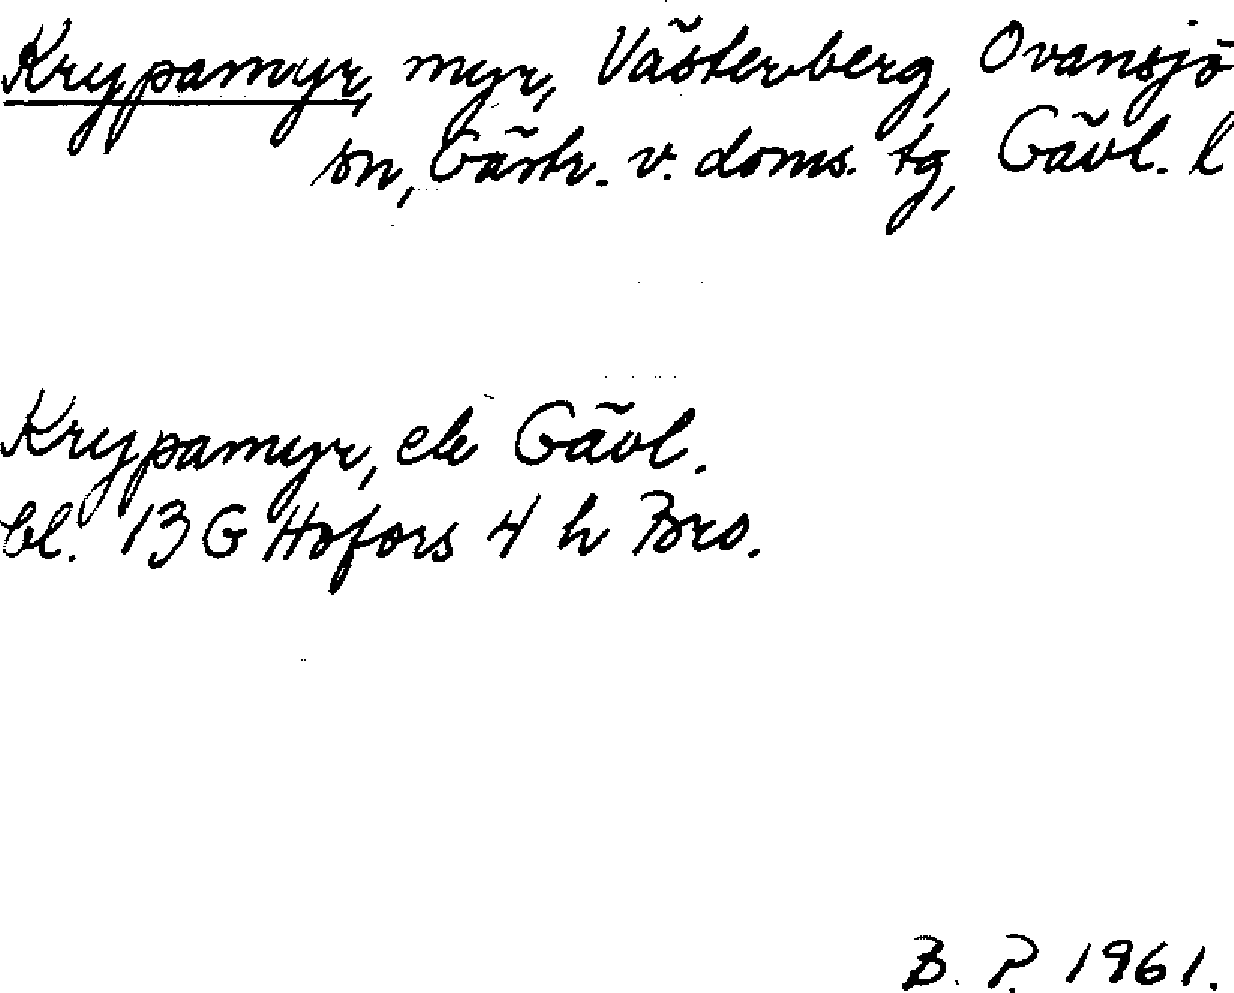 Krypamyr, myr, Västerberg, Ovansjö
sn, Gästr. v. doms. tg, Gävl. l
Krypamyr, ek Gävl.
bl. 13 G Hofors 4 h Bro.
B. P. 1961.